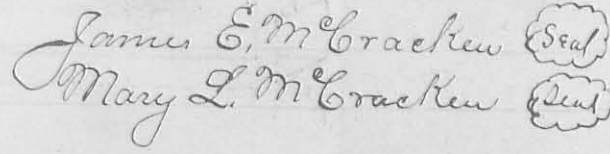 James E. McCracken Seal
Mary L. McCracken Seal